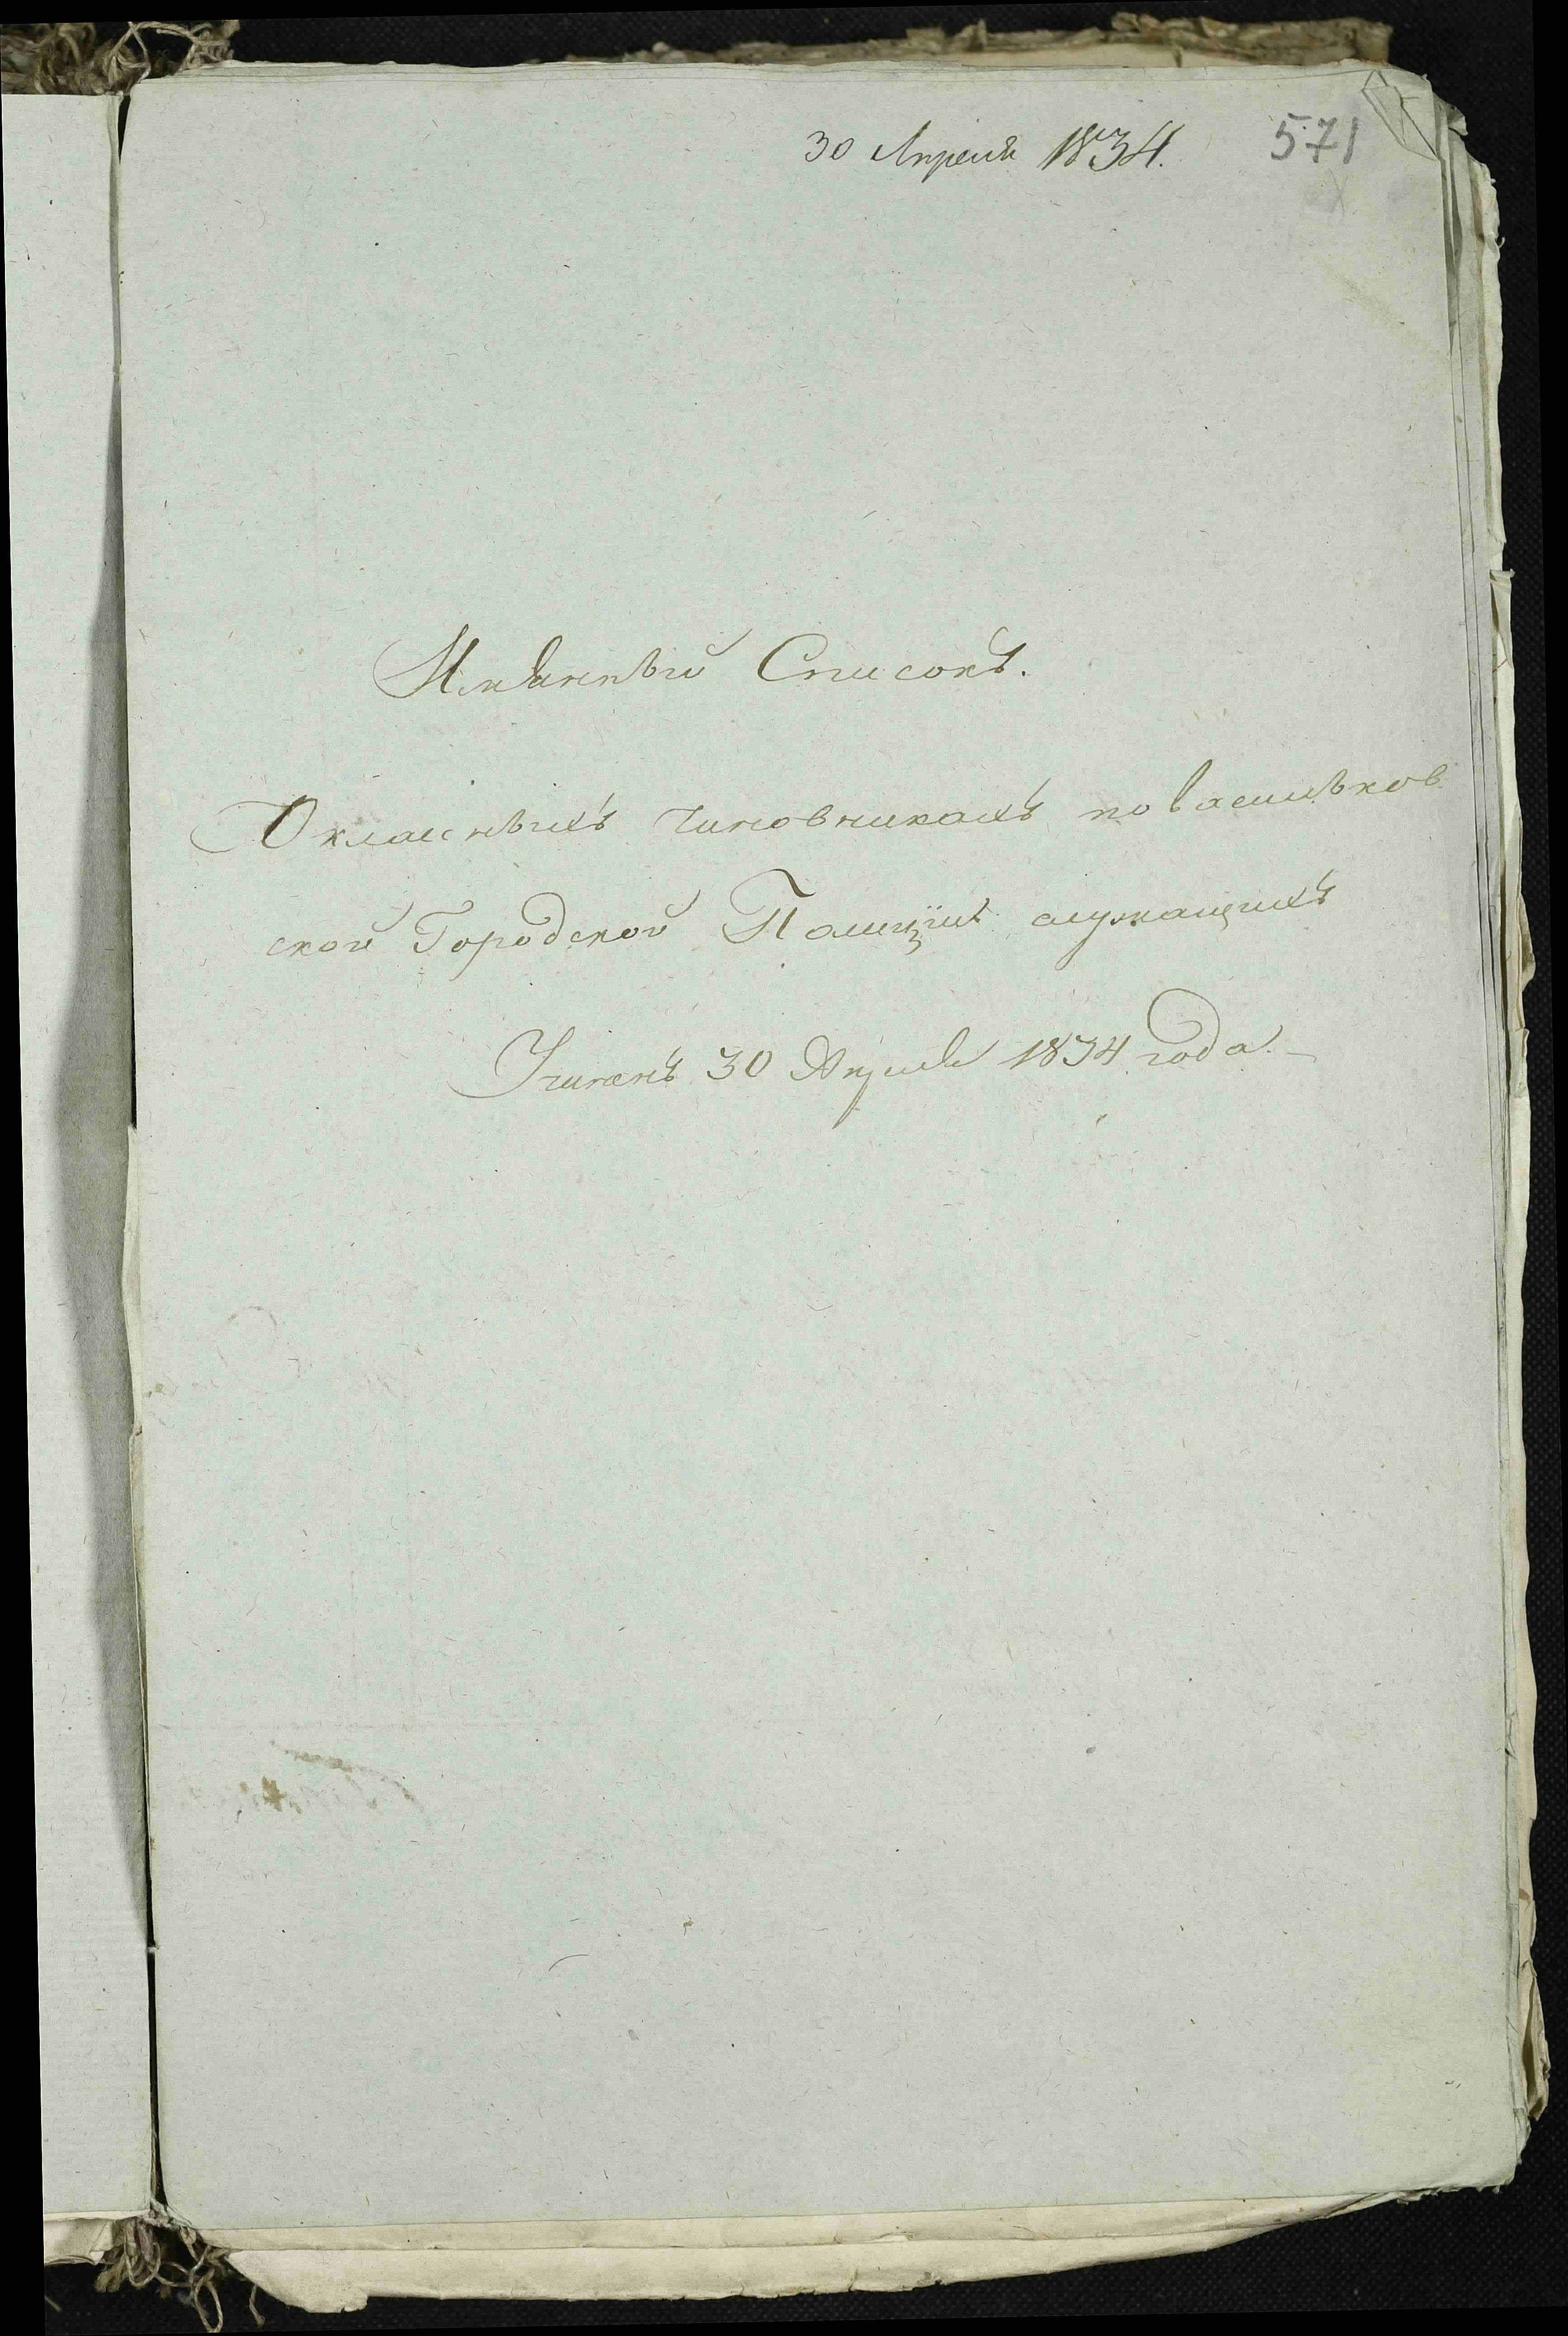 30 Апреля 1834.
571
Имянный Списокъ.
О класныхъ Чиновникахъ по Васильков
ской Городской Полиціи служащихъ
Учиненъ 30 Апреля 1834 года.